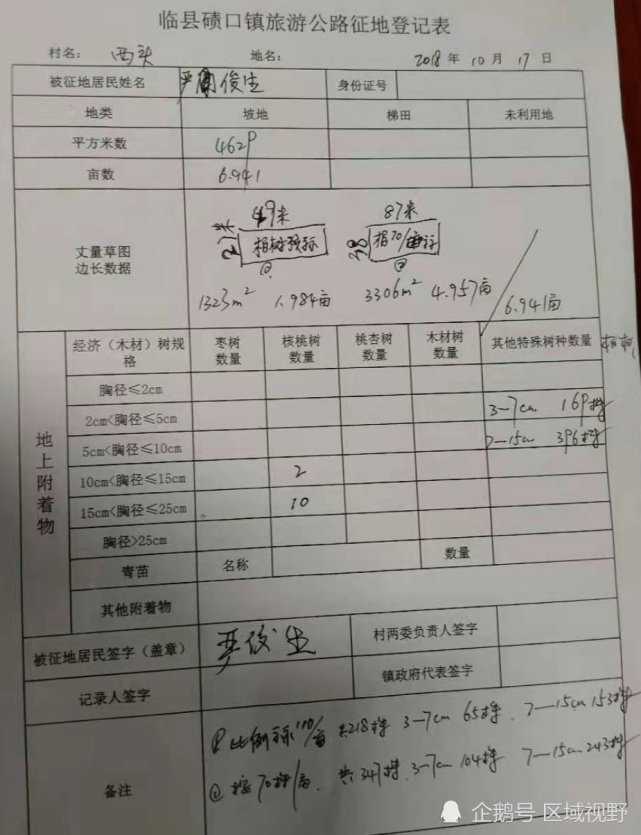 临县碛口镇旅游公路征地登记表
村名： 西头 地名： 2018 年 10 月 17 日
被征地居民姓名 严俊生 身份证号
地类 坡地 梯田 未利用地
平方米数 4629
亩数 6.941
丈量草图
边长数据
49米 87米
27 38
1323m² 1.984亩 3306m² 4.957亩 6.941亩
地上附着物
经济（木材）树规格 枣树数量 核桃树数量 桃杏树数量 木材树数量 其他特殊树种数量
胸径≤2cm
2cm<胸径≤5cm 3-7cm 169株
5cm<胸径≤10cm 7-15cm 396株
10cm<胸径≤15cm 2
15cm<胸径≤25cm 10
胸径>25cm
青苗 名称 数量
其他附着物
被征地居民签字（盖章） 严俊生 村两委负责人签字
记录人签字 镇政府代表签字
备注
① 比例 110/亩 共218株 3-7cm 65株、7-15cm 153株
② 按70株/亩、共347株、3-7cm 104株 7-15cm 243株
企鹅号 区域视野